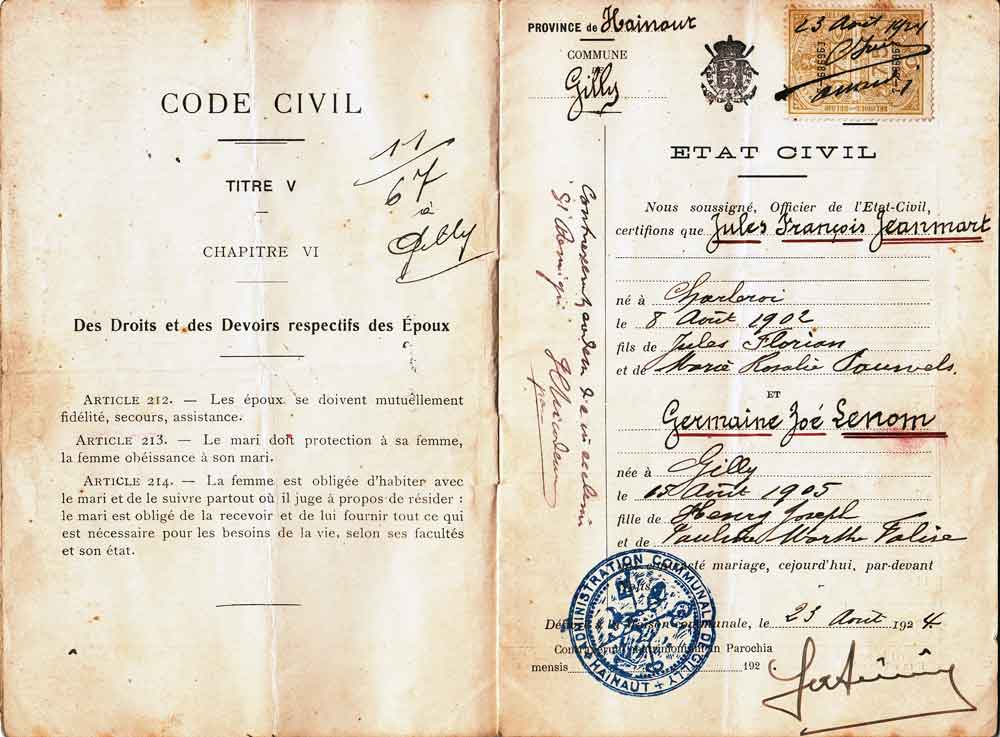 CODE CIVIL
TITRE V
CHAPITRE VI
Des Droits et des Devoirs respectifs des Époux
ARTICLE 212. — Les époux se doivent mutuellement
fidélité, secours, assistance.
ARTICLE 213. — Le mari doit protection à sa femme,
la femme obéissance à son mari.
ARTICLE 214. — La femme est obligée d'habiter avec
le mari et de le suivre partout où il juge à propos de résider :
le mari est obligé de la recevoir et de lui fournir tout ce qui
est nécessaire pour les besoins de la vie, selon ses facultés
et son état.
11
67
à
Gilly
PROVINCE de Hainaut
COMMUNE
DE
Gilly
23 Août 1924
ETAT CIVIL
Nous soussigné, Officier de l'Etat-Civil,
certifions que Jules François Jeanmart
né à Charleroi
le 8 Août 1902
fils de Jules Florian
et de Marie Rosalie Pauwels.
ET
Germaine Zoé Lenom
née à Gilly
le 15 Août 1905
fille de Henry Joseph
et de Pauline Marthe Falise
mariage, cejourd'hui, par-devant
communale, le 23 Août 1924
matrimonium in Parochia
mensis 192
ADMINISTRATION COMMUNALE DE GILLY
HAINAUT